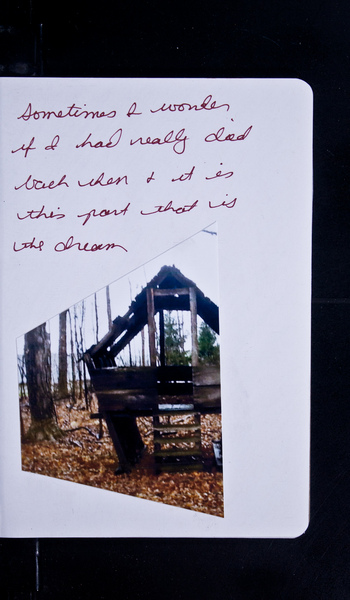 Sometimes I wonder
if I had really died
back then & it is
this part that is
the dream